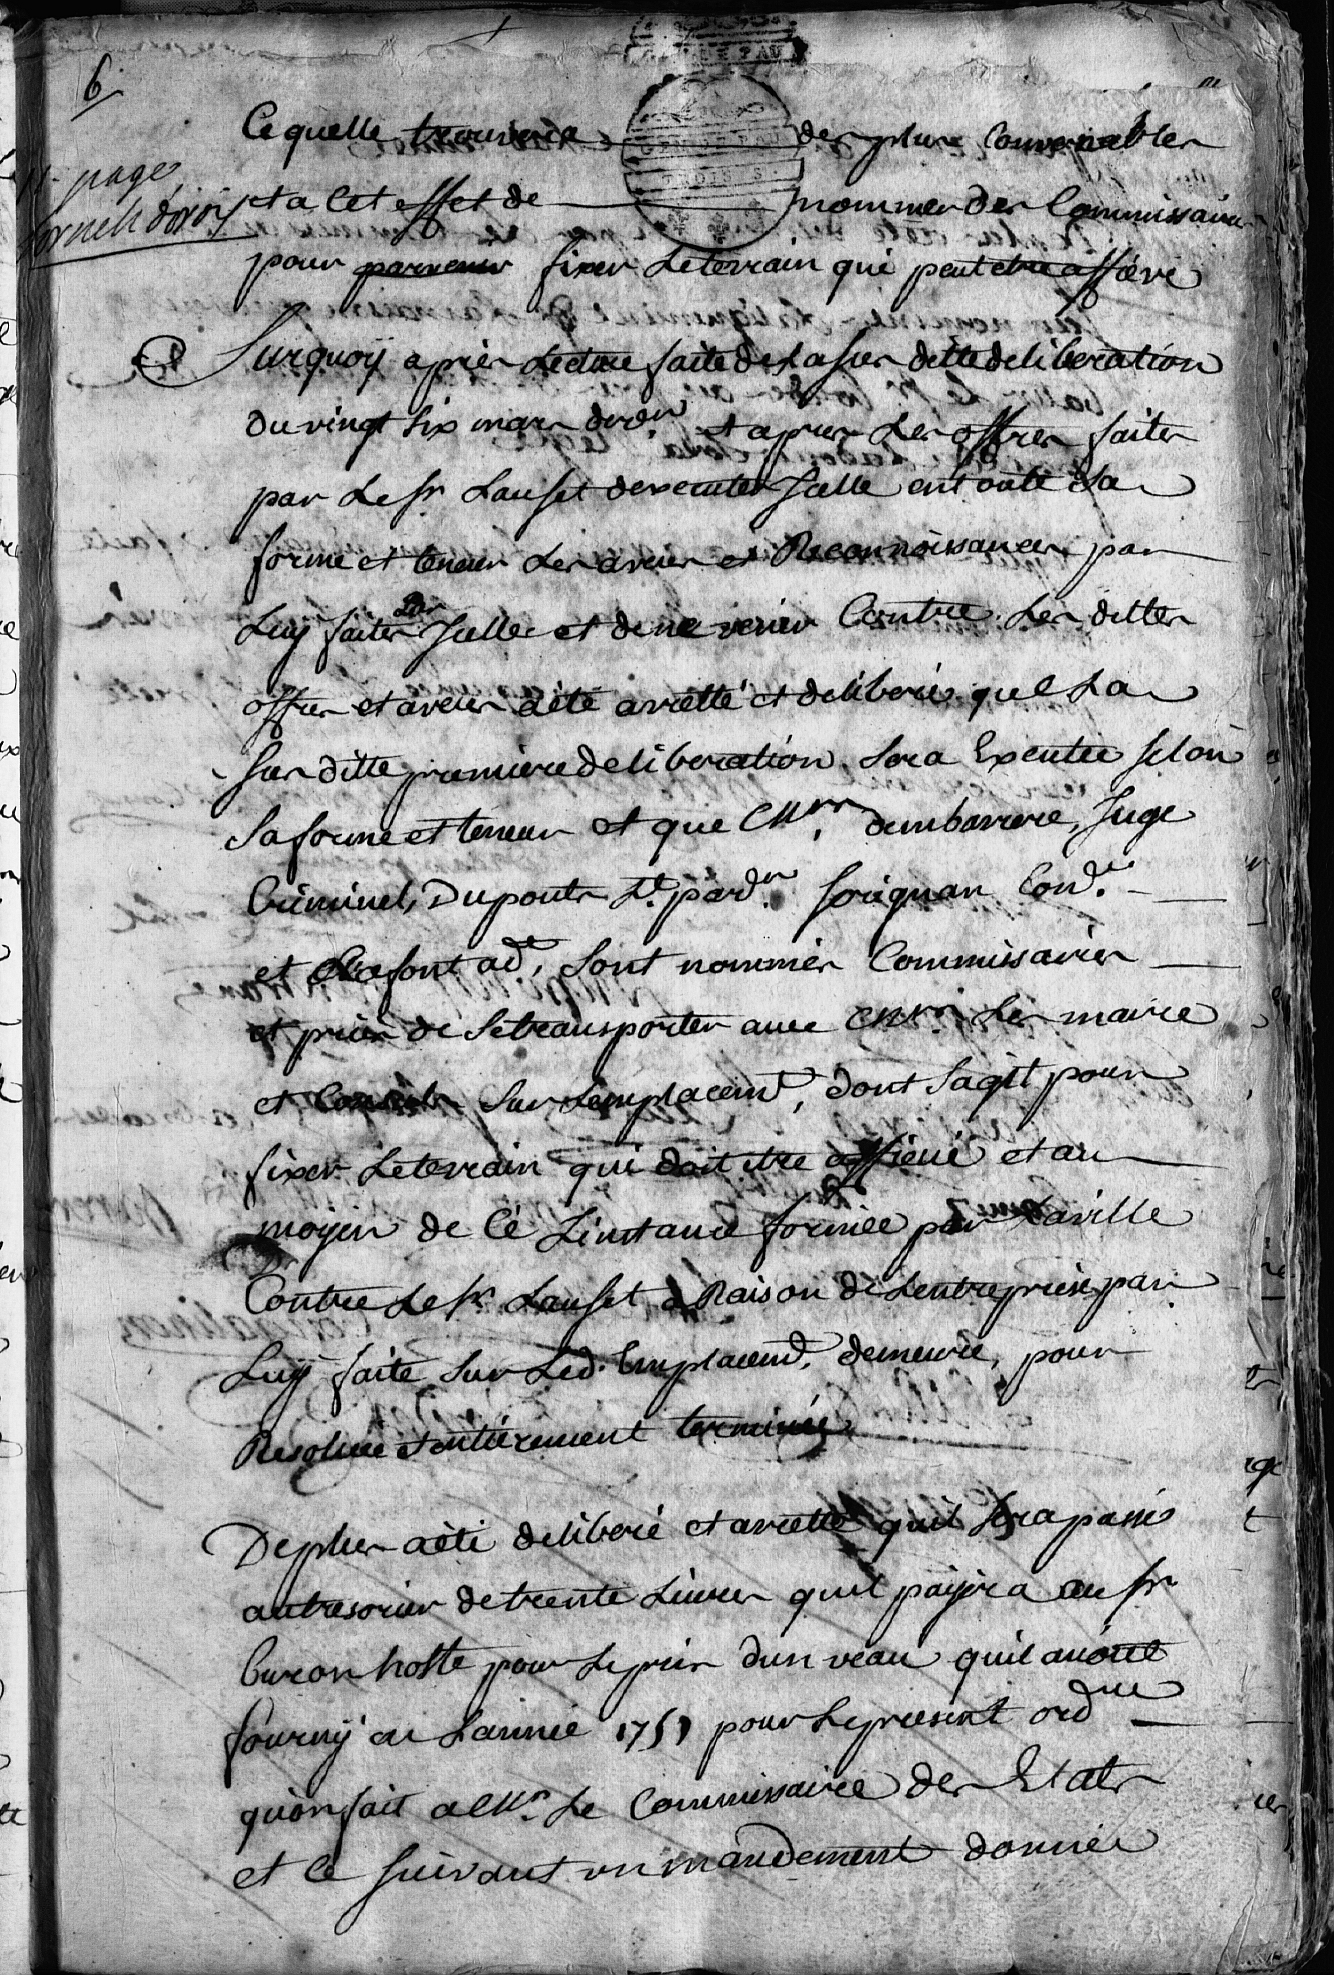 6
page
Ce quelle trouvera des plus Convenables
et a Cet effet de nommer des Commissaires
pour parvenir fixer Le terrain qui peut etre affiévé
Surquoÿ aprèz Lecture faite de la sus ditte deliberation
du vingt six mars der.er et aprez Les offres faites
par Le sr. Lauset dexecuter Jcelle en toute Sa
forme et teneur Les aveus et Reconnoissances par
Luy faites Par Jcelle et de ne venir Contre Les dittes
offres et aveus a été arretté et deliberé que La
Sus ditte premiere deliberation Sera Executée selon
Sa forme et teneur et que Mrs. dembarrere, Juge
Criminel, Dupouts Lt. parer. Sorignan Cond.r
et Lafont ad.t Sont nommés Commissaires
et priés de Se transporter avec Mrs. Les maire
et Consuls Sur Lemplacemt, dont Sagit pour
fixer Le terrain qui doit etre affiévé et au
moyen de Cé Linstance formée par La ville
Contre Le sr. Lauset a Raison de Lentreprise par
Luÿ faite Sur Led. Emplacemt. demeure, pour
Resolue et entièrement terminée
De plus a été deliberé et arretté quil Sera passé
au tresorier de trente Livres quil paÿera au sr
Curon hoste pour Le prix dun veau quil auoit
fourny en Lannée 1751 pour Le present ord.re
quon fait a Mr. Le Commissaire des Etats
et Ce suivant un mandement donnée